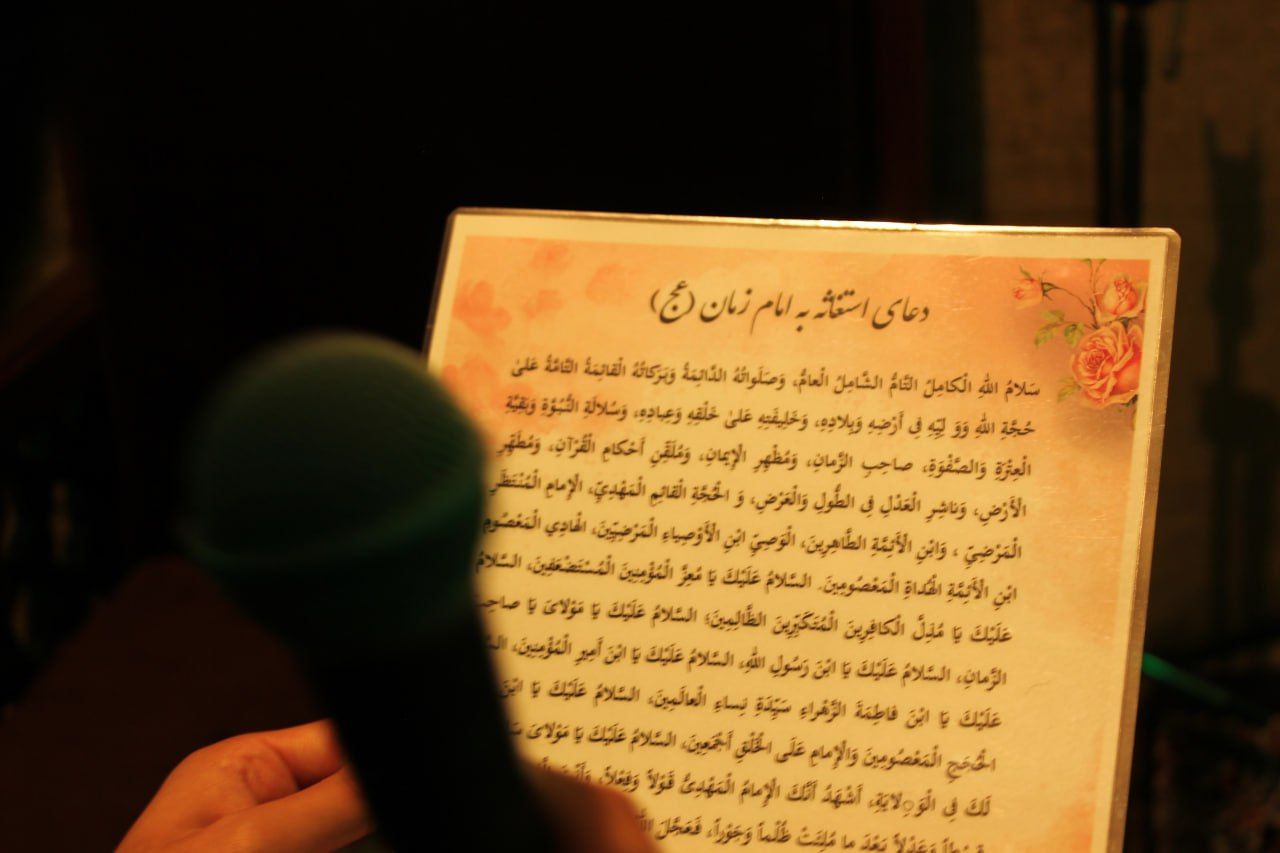 دعای استغاثه به امام زمان (عج)
سَلامُ اللهِ الْکامِلُ التّامُّ الشّامِلُ الْعامُّ، وَصَلَواتُهُ الدّائِمَةُ وَبَرَکاتُهُ الْقائِمَةُ التّامَّةُ عَلیٰ
حُجَّةِ اللهِ وَوَ لِیِّهِ فِی أَرْضِهِ وَبِلادِهِ، وَخَلِیفَتِهِ عَلیٰ خَلْقِهِ وَعِبادِهِ، وَسُلالَةِ النُّبُوَّةِ وَبَقِیَّةِ
الْعِتْرَةِ وَالصَّفْوَةِ، صاحِبِ الزَّمانِ، وَمُظْهِرِ الْإِیمانِ، وَمُلَقِّنِ أَحْکامِ الْقُرْآنِ، وَمُطَهِّرِ
الْأَرْضِ، وَناشِرِ الْعَدْلِ فِی الطُّولِ وَالْعَرْضِ، وَ الْحُجَّةِ الْقائِمِ الْمَهْدِیِّ، الْإِمامِ الْمُنْتَظَرِ
الْمَرْضِیِّ ، وَابْنِ الْأَئِمَّةِ الطّاهِرِینَ، الْوَصِیِّ ابْنِ الْأَوْصِیاءِ الْمَرْضِیِّینَ، الْهادِي الْمَعْصُومِ
ابْنِ الْأَئِمَّةِ الْهُداةِ الْمَعْصُومِینَ. السَّلامُ عَلَیْكَ یَا مُعِزَّ الْمُؤْمِنِینَ الْمُسْتَضْعَفِینَ، السَّلامُ
عَلَیْكَ یَا مُذِلَّ الْکافِرِینَ الْمُتَکَبِّرِینَ الظّالِمِینَ؛ السَّلامُ عَلَیْكَ یَا مَوْلایَ یَا
الزَّمانِ، السَّلامُ عَلَیْكَ یَا ابْنَ رَسُولِ اللهِ، السَّلامُ عَلَیْكَ یَا ابْنَ أَمِیرِ الْمُؤْمِنِینَ،
عَلَیْكَ یَا ابْنَ فاطِمَةَ الزَّهْراءِ سَیِّدَةِ نِساءِ الْعالَمِینَ، السَّلامُ عَلَیْكَ یَا ابْنَ
الْحُجَجِ الْمَعْصُومِینَ وَالْإِمامِ عَلَی الْخَلْقِ أَجْمَعِینَ، السَّلامُ عَلَیْكَ یَا مَوْلایَ
لَكَ فِی الْوَِلایَةِ، أَشْهَدُ أَنَّكَ الْإِمامُ الْمَهْدِیُّ قَوْلاً وَفِعْلاً،
وَعَدْلاً بَعْدَ ما مُلِئَتْ ظُلْماً وَجَوْراً، فَعَجَّلَ